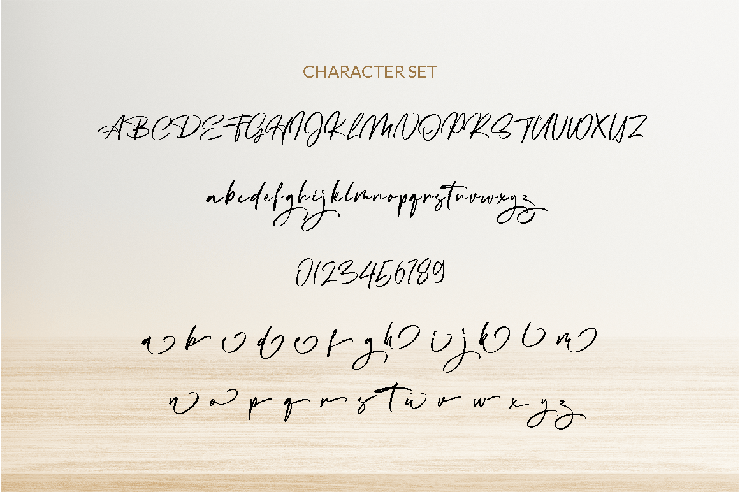 CHARACTER SET
ABCDEFGHIJKLMNOPRSTUVWXYZ
abcdefghijklmnopqrstuvwxyz
0123456789
a b c d e f g h i j k l m
n o p q r s t u v w x y z